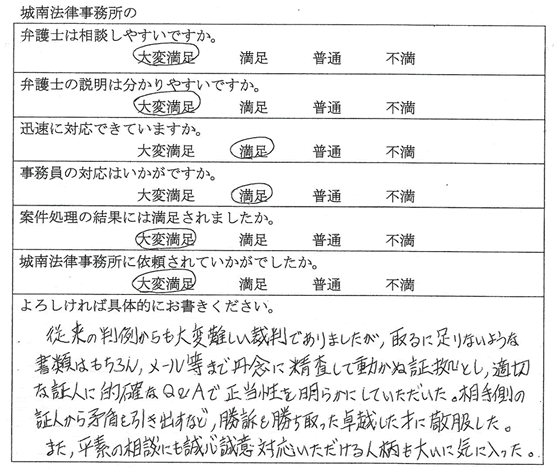 城南法律事務所の
弁護士は相談しやすいですか。
大変満足 満足 普通 不満
弁護士の説明は分かりやすいですか。
大変満足 満足 普通 不満
迅速に対応できていますか。
大変満足 満足 普通 不満
事務員の対応はいかがですか。
大変満足 満足 普通 不満
案件処理の結果には満足されましたか。
大変満足 満足 普通 不満
城南法律事務所に依頼されていかがでしたか。
大変満足 満足 普通 不満
よろしければ具体的にお書きください。
従来の判例からも大変難しい裁判でありましたが,取るに足りないような
書類はもちろん,メール等まで丹念に精査して動かぬ証拠とし,適切
な証人に的確なQ&Aで正当性を明らかにしていただいた。相手側の
証人から矛盾も引き出すなど,勝訴も勝ち取った卓越した才に敬服した。
また,平素の相談にも誠心誠意対応いただける人柄も大いに気に入った。